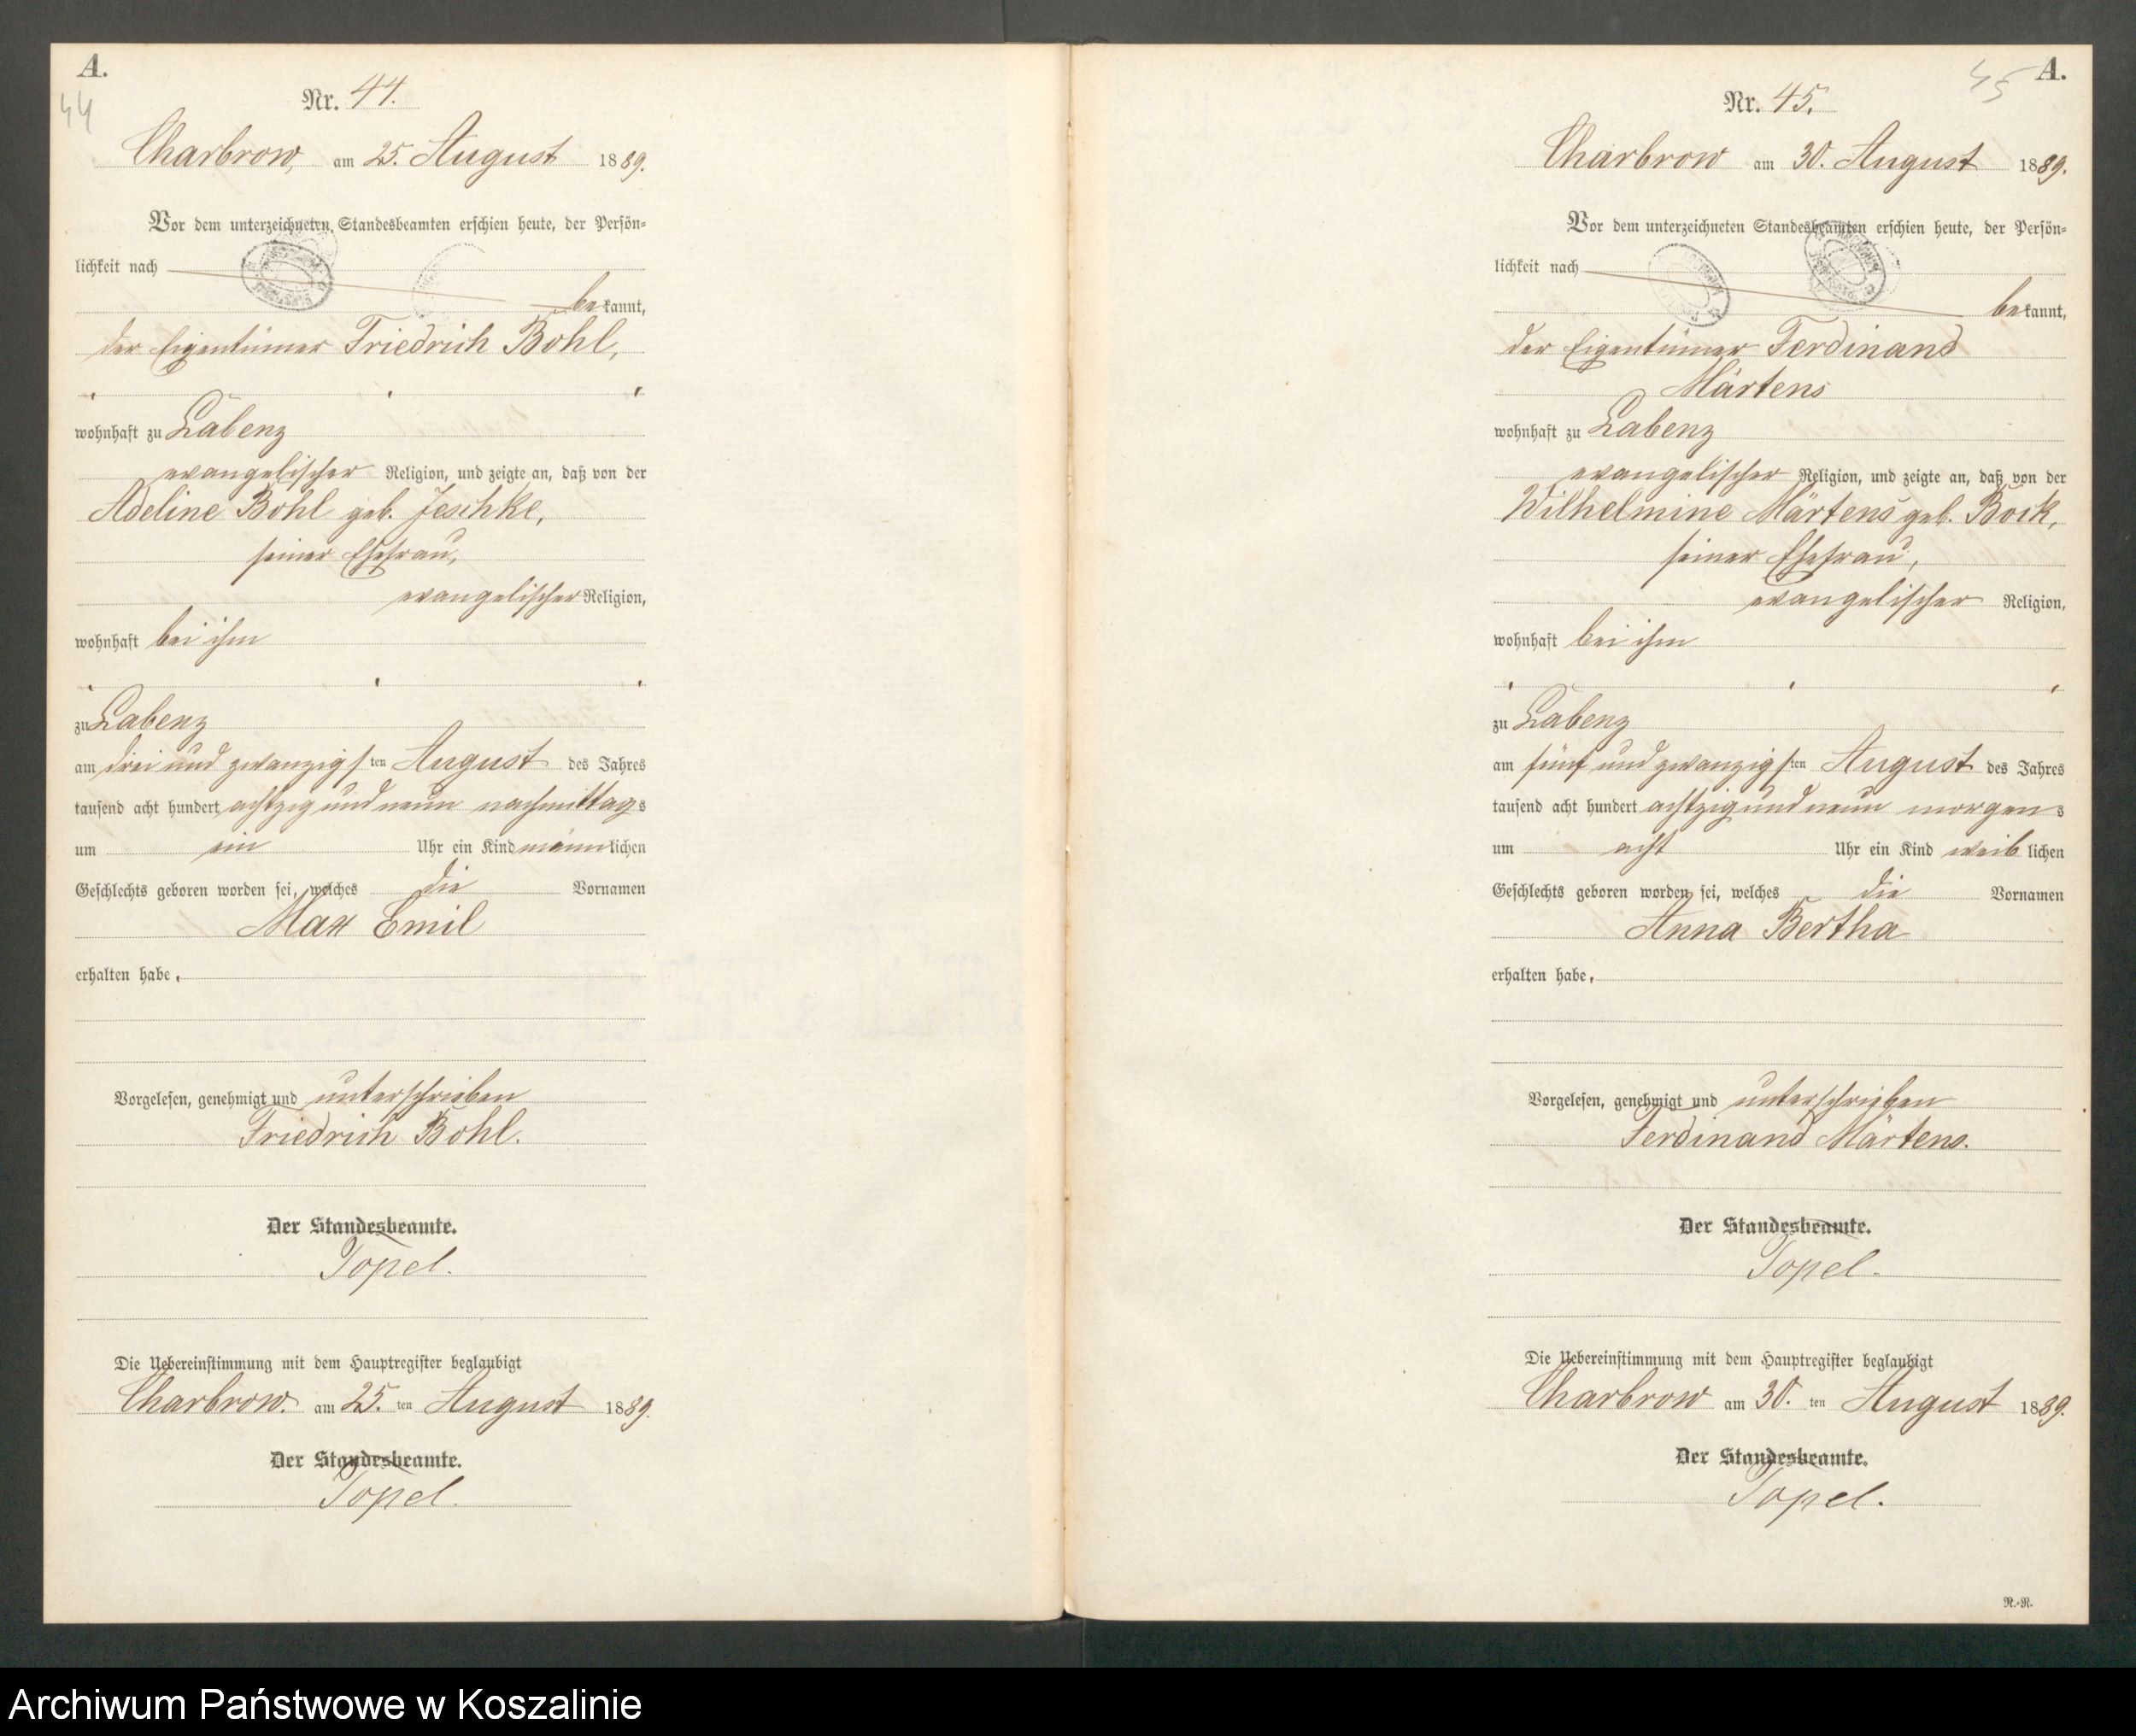 A.
44
Nr. 44.
Charbrow, am 25. August 1889.
Vor dem unterzeichneten Standesbeamten erschien heute, der Persön-
lichkeit nach
bekannt,
der Eigentümer Friedrich Bohl,
wohnhaft zu Labenz
evangelischer Religion, und zeigte an, daß von der
Adeline Bohl geb. Jeschke,
seiner Ehefrau,
evangelischer Religion,
wohnhaft bei ihm
zu Labenz
am drei und zwanzigsten August des Jahres
tausend acht hundert achtzig und neun nachmittags
um ein Uhr ein Kind männlichen
Geschlechts geboren worden sei, welches die Vornamen
Max Emil
erhalten habe.
Vorgelesen, genehmigt und unterschrieben
Friedrich Bohl.
Der Standesbeamte.
Topel.
Die Uebereinstimmung mit dem Hauptregister beglaubigt
Charbrow am 25. ten August 1889.
Der Standesbeamte.
Topel.
A.
45
Nr. 45.
Charbrow am 30. August 1889.
Vor dem unterzeichneten Standesbeamten erschien heute, der Persön-
lichkeit nach
bekannt,
der Eigentümer Ferdinand
Märtens
wohnhaft zu Labenz
evangelischer Religion, und zeigte an, daß von der
Wilhelmine Märtens geb. Bock,
seiner Ehefrau,
evangelischer Religion,
wohnhaft bei ihm
zu Labenz
am fünf und zwanzigsten August des Jahres
tausend acht hundert achtzig und neun morgens
um acht Uhr ein Kind weiblichen
Geschlechts geboren worden sei, welches die Vornamen
Anna Bertha
erhalten habe.
Vorgelesen, genehmigt und unterschrieben
Ferdinand Märtens.
Der Standesbeamte.
Topel.
Die Uebereinstimmung mit dem Hauptregister beglaubigt
Charbrow am 30. ten August 1889.
Der Standesbeamte.
Topel.
R.-R.
Archiwum Państwowe w Koszalinie